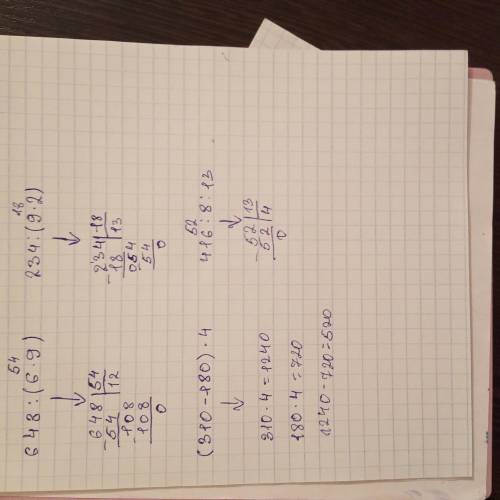 54
648:(6·9)
↓
648|54
-54 |12
-108
108
0
18
234:(9·2)
↓
-234|18
18 |13
054
54
0
(310-180)·4
↓
310·4=1240
180·4=720
1240-720=520
52
416:8:13
↓
-52|13
52|4
0